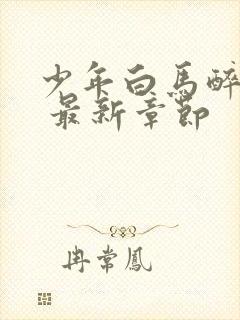 少年白馬醉
最新章節
冉常鳳